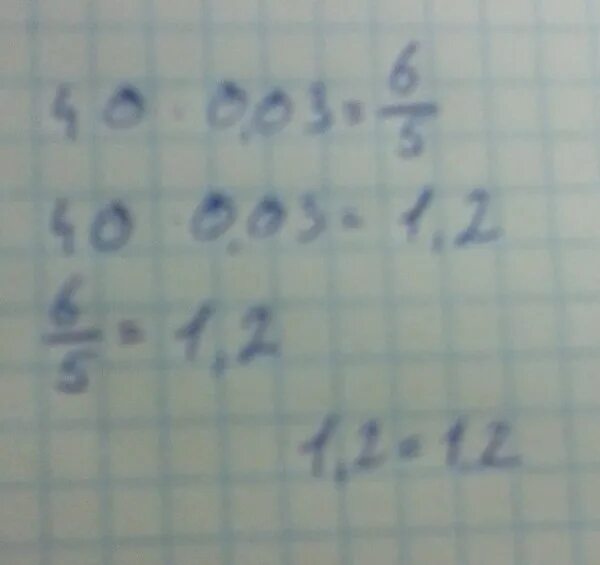 40 · 0,03 = 6/5
40 · 0,03 = 1,2
6/5 = 1,2
1,2 = 1,2